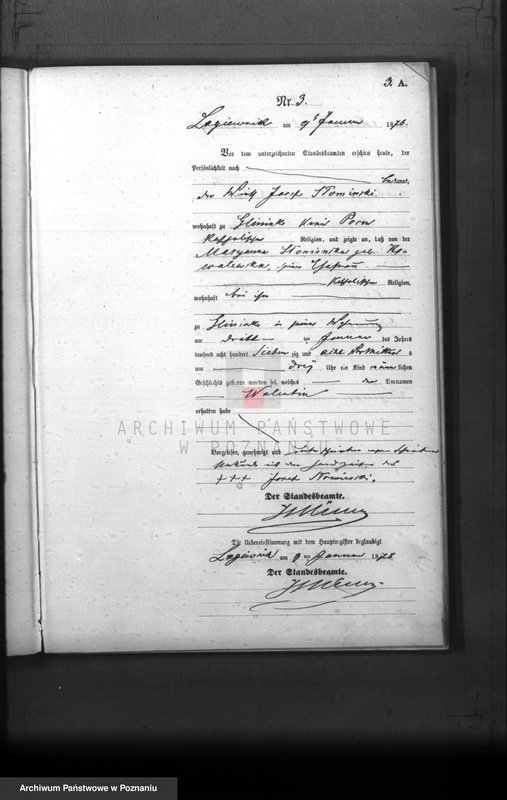 3. A.
Nr. 3.
am 9t Januar 1878.
Vor dem unterzeichneten Standesbeamten erschien heute, der
Persönlichkeit nach
bekannt,
der Josef Slominski
wohnhaft zu Glinienko Kreis Posen
katholischer Religion, und zeigte an, daß von der
Maryanna Slominska geb. Ko-
walewska, seiner Ehefrau
katholischer Religion,
wohnhaft bei ihm
zu Glinienko in seiner Wohnung
am dritten ten Januar des Jahres
tausend acht hundert siebenzig und acht Vormittags
um drei Uhr ein Kind männlichen
Geschlechts geboren worden sei, welches den Vornamen
Walentin
erhalten habe
ARCHIWUM PAŃSTWOWE
W POZNANIU
Vorgelesen, genehmigt und
mit den Handzeichen des
+++ Josef
Der Standesbeamte.
Die Uebereinstimmung mit dem Hauptregister beglaubigt
am 9 ten Januar 1878
Der Standesbeamte.
Archiwum Państwowe w Poznaniu